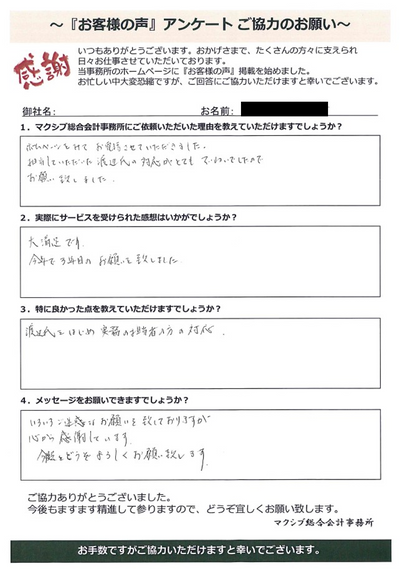 ～『お客様の声』アンケート ご協力のお願い～
感謝
いつもありがとうございます。おかげさまで、たくさんの方々に支えられ
日々お仕事させていただいております。
当事務所のホームページに『お客様の声』掲載を始めました。
お忙しい中大変恐縮ですが、ご回答にご協力いただけますと幸いでございます。
御社名： お名前：
１．マクシブ総合会計事務所にご依頼いただいた理由を教えていただけますでしょうか？
ホームページをみて お電話させていただきました。
担当していただいた 渡辺氏の対応がとても ていねいでしたので
お願い致しました。
２．実際にサービスを受けられた感想はいかがでしょうか？
大満足です。
今年で3年目の お願いを致しました
３．特に良かった点を教えていただけますでしょうか？
渡辺氏をはじめ 実務の担当者の方の対応。
４．メッセージをお願いできますでしょうか？
いろいろご迷惑な お願いを致しておりますが
心から感謝しています。
今後ともどうぞよろしくお願い致します。
ご協力ありがとうございました。
今後もますます精進して参りますので、どうぞ宜しくお願い致します。
マクシブ総合会計事務所
お手数ですがご協力いただけますと幸いでございます。